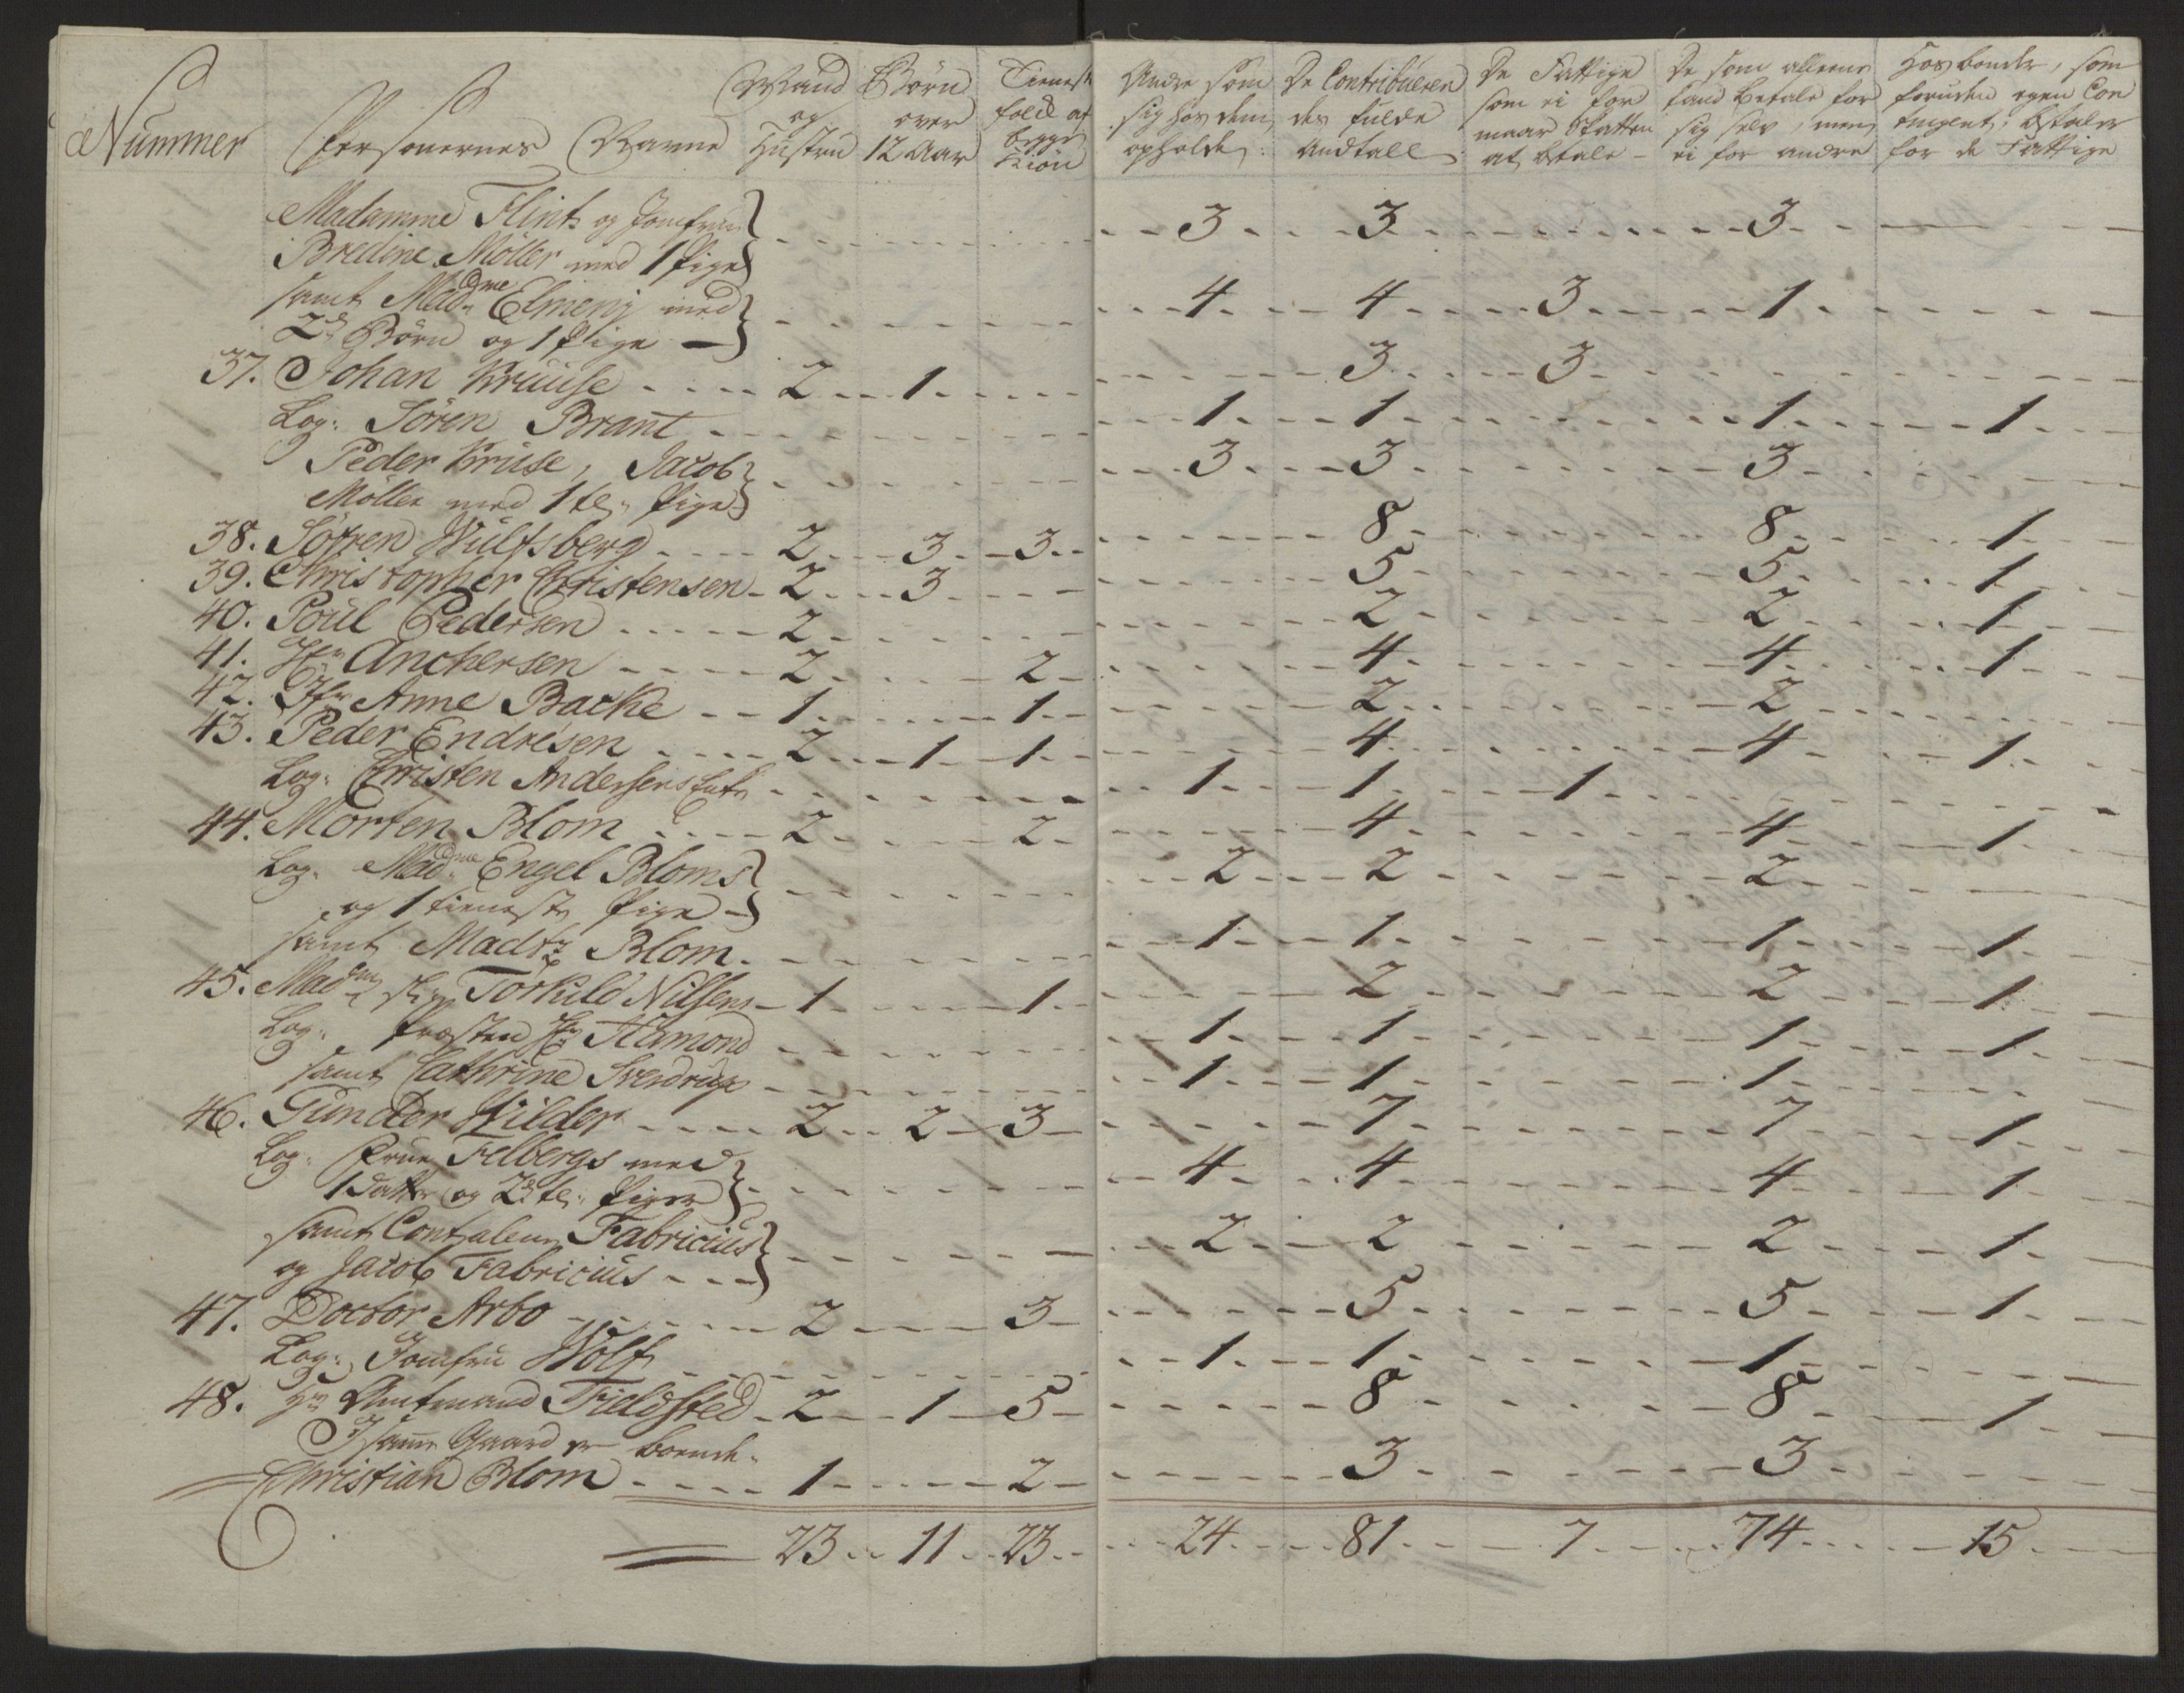 Nummer Personernes Navne Mand og Hustru Børn over 12 Aar Tieneste folck af begge Kiøn Andre som sig hos dem opholde De Contribueren des fulde Andtall De Fattige som ei for maar Skatten at betale De som alleene kand betale for sig selv, men ei for andre Hosbonde, som foruden egen Con tingent, betaler for de Fattige
Madamme Flint og Jomfrue
Bredine Møller med 1 Pige 3 3 3
samt Madme Elmenj med
2de Børn og 1 Pige 4 4 3 1
37. Johan Kruuse 2 1 3 3
Log: Sören Brant 1 1 1 1
Peder Kruse, Jacob
Möller med 1 te: Pige 3 3 3
38. Sörren Wulfsberg 2 3 3 8 8 1
39. Christopher Christensen 2 3 5 5 1
40. Poul Pedersen 2 2 2 1
41. Hr Anchersen 2 2 4 4 1
42. Jfr Anne Backe 1 1 2 2
43. Peder Endresen 2 1 1 4 4 1
Log: Christen Andersens Enke 1 1 1
44. Morten Blom 2 2 4 4 1
Log: Madme Engel Bloms
og 1 tieneste Pige 2 2 2
samt Madtz Blom 1 1 1 1
45. Madme Torkild Nilsens 1 1 2 2 1
Log: Præsten Hr Hamond 1 1 1 1
samt Cathrine Sverdrup 1 1 1
46. Gunder Wilder 2 2 3 7 7 1
Log: Frue Felbergs med
1 datter og 2de te: Piger 4 4 4 1
samt Fabricius
og Jacob Fabricius 2 2 2 1
47. Doctor Arbo 2 3 5 5 1
Log: Jomfru Wolf 1 1 1
48. Hr Amtmand Fieldsted 2 1 5 8 8 1
I samme Gaard er boende
Christian Blom 1 2 3 3
23 11 23 24 81 7 74 15